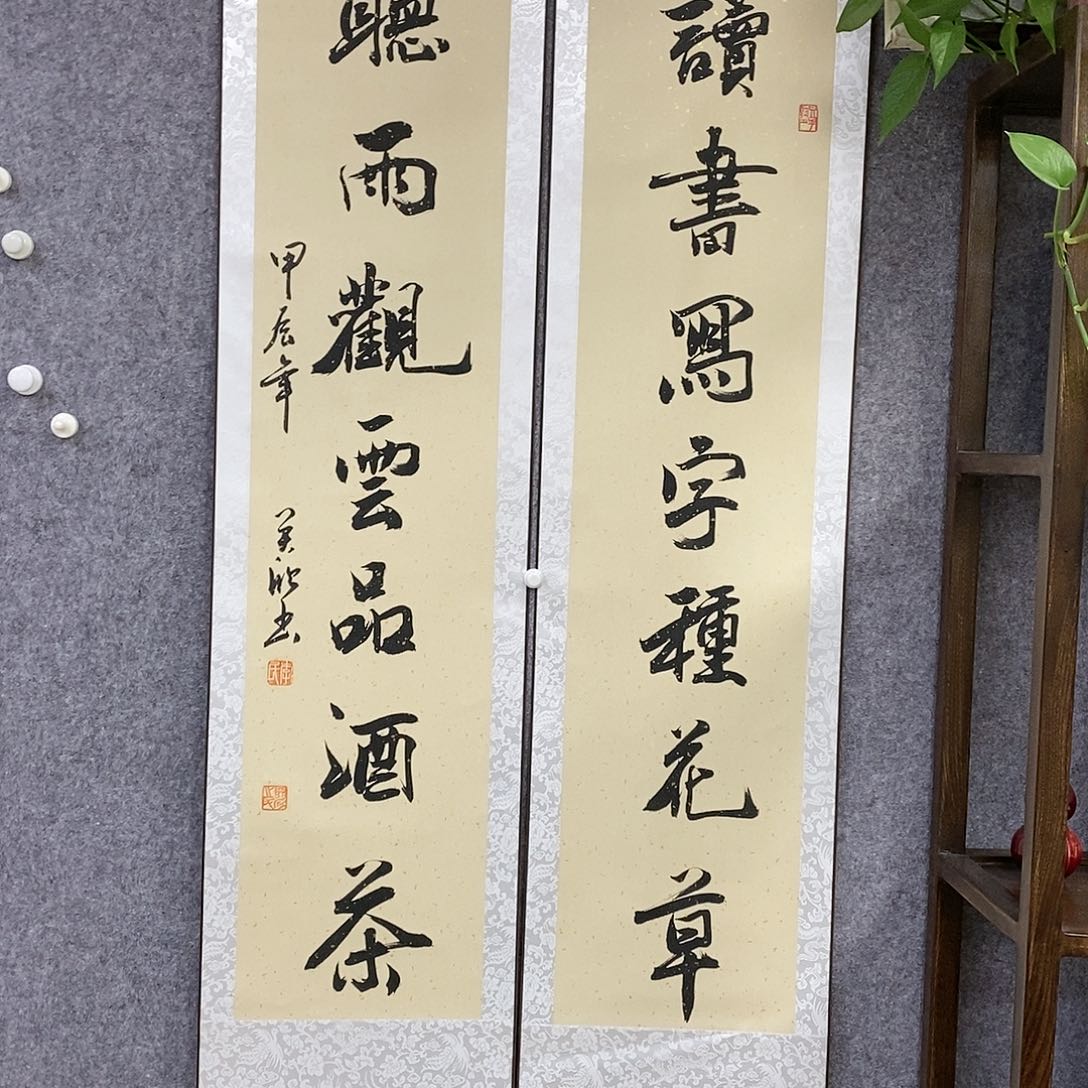 讀書寫字種花草
聽雨觀雲品酒茶
甲辰年